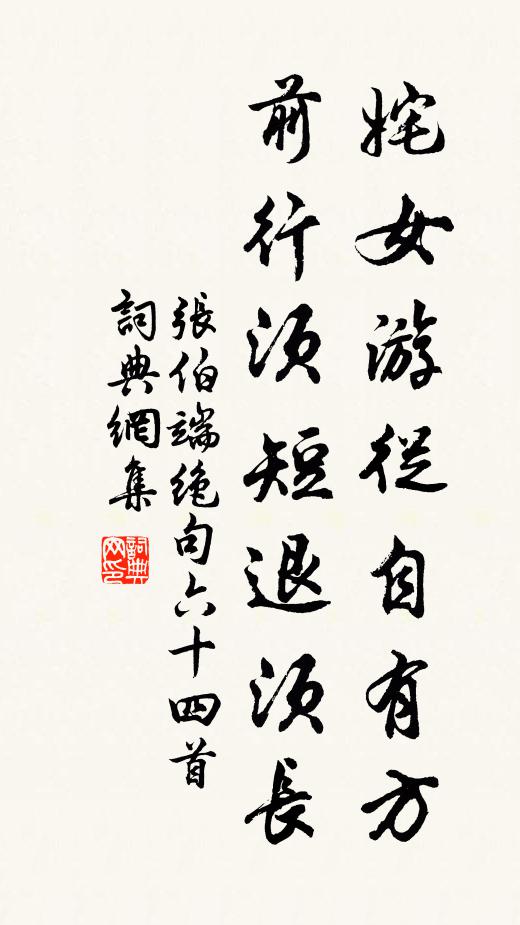 姹女游從自有方
前行須短退須長
張伯端絕句六十四首
詞典網集
詞典
网印